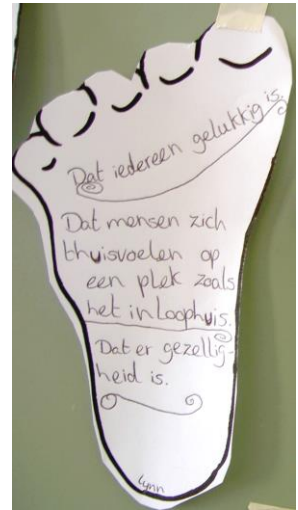 Dat iedereen gelukkig is.
Dat mensen zich
thuisvoelen op
een plek zoals
het inloophuis.
Dat er gezellig-
heid is.
Lynn